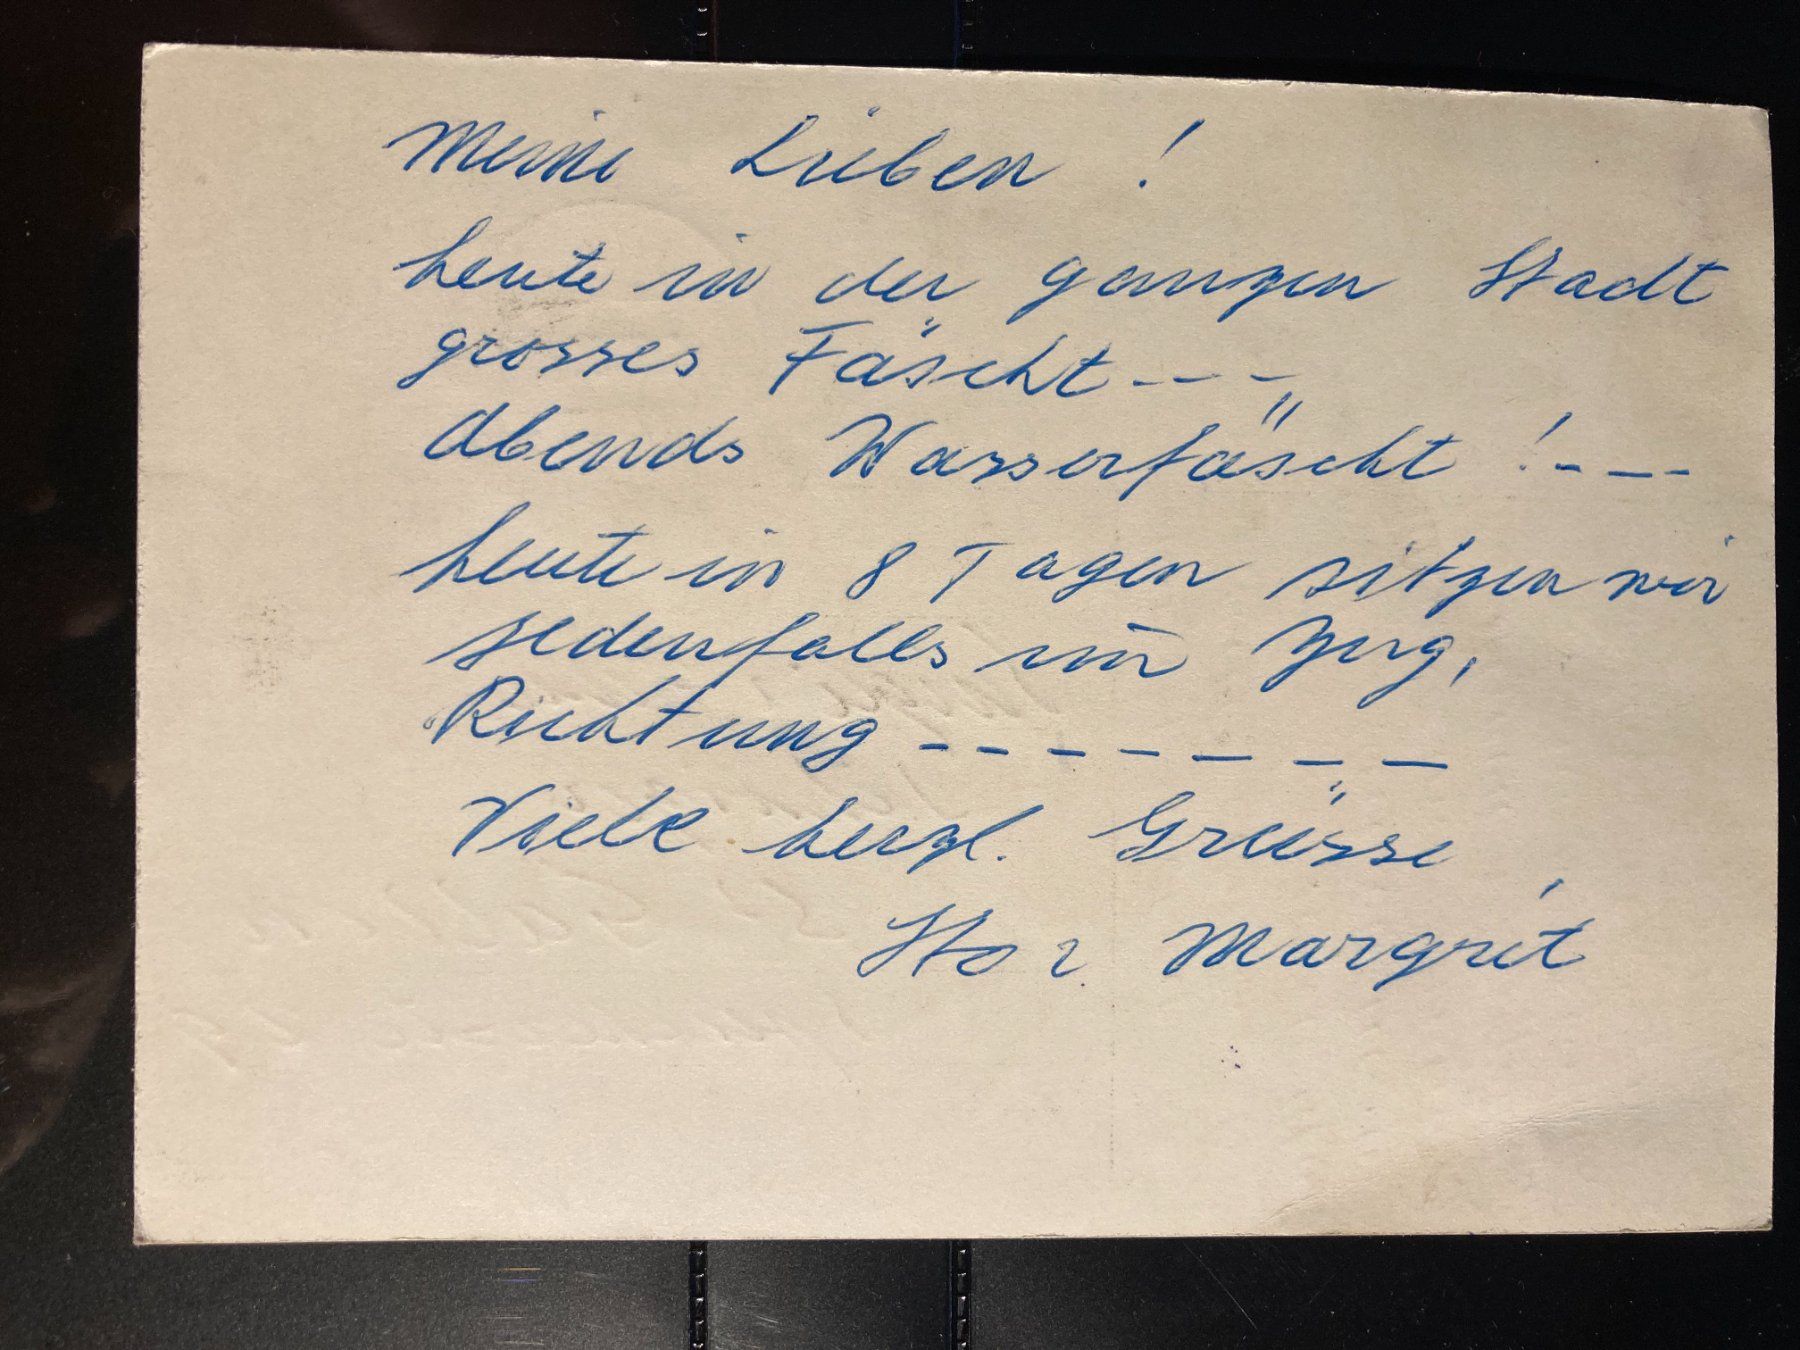 Meine Lieben !
heute in der ganzen Stadt
grosses Fäscht - - -
Abends Wasserfäscht ! - - -
heute in 8 Tagen sitzen wir
jedenfalls im Zug,
Richtung - - - - - - - -
Viele herzl. Grüsse
Margrit